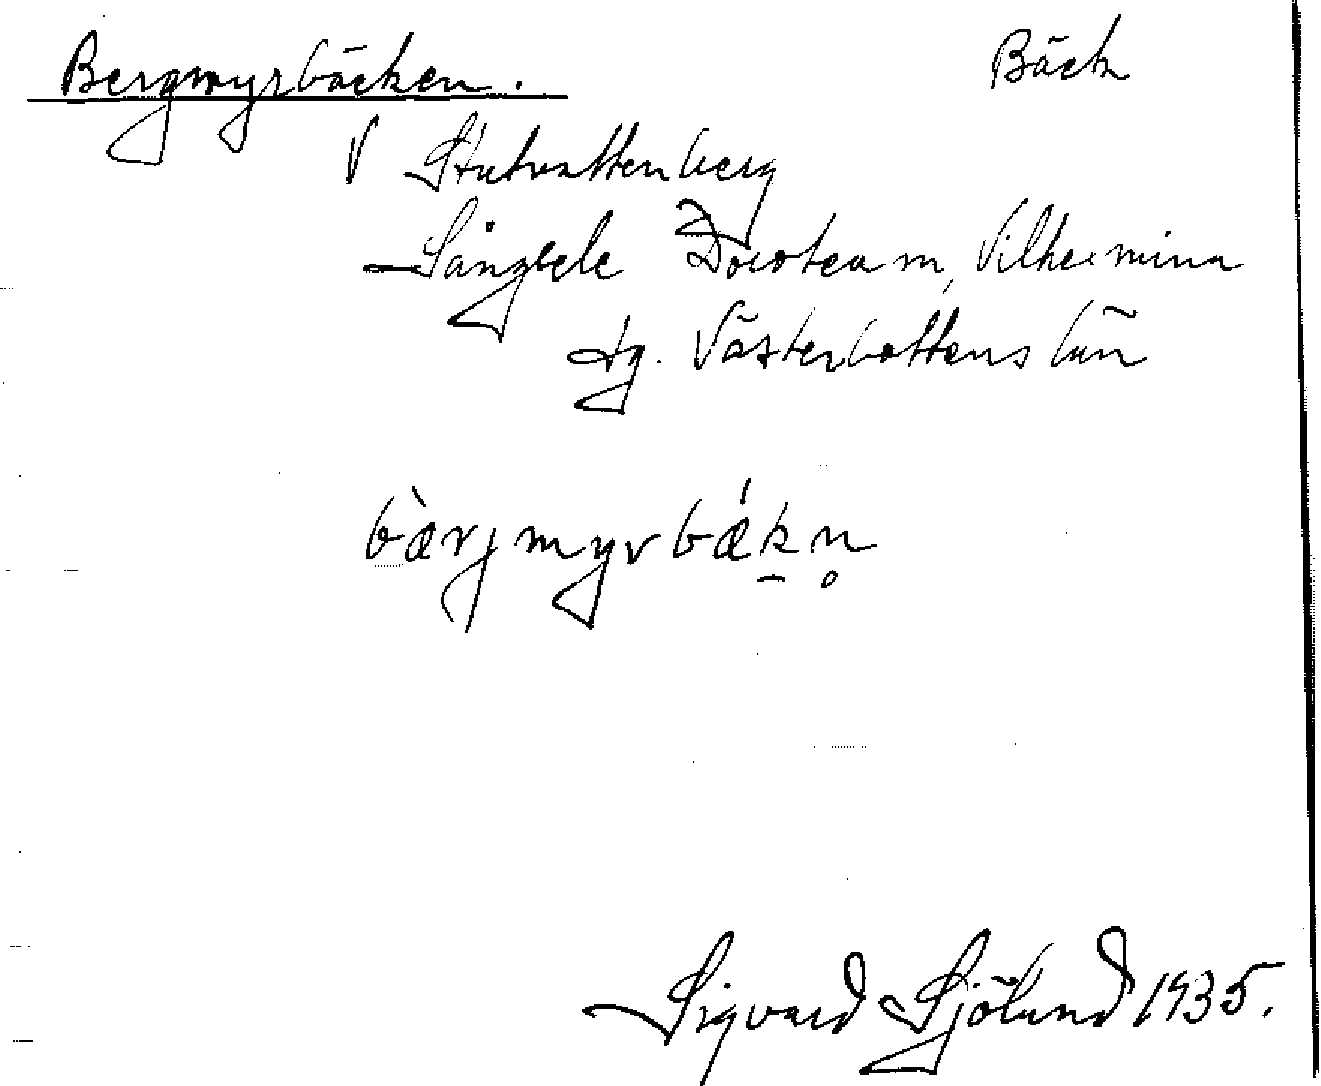 Bergmyrbäcken. Bäck
V Stutvattenberg
Långsele Dorotea sn, Vilhelmina
tg. Västerbottens län
bàrjmyrbákn̥
Sigvard Sjölund 1935.